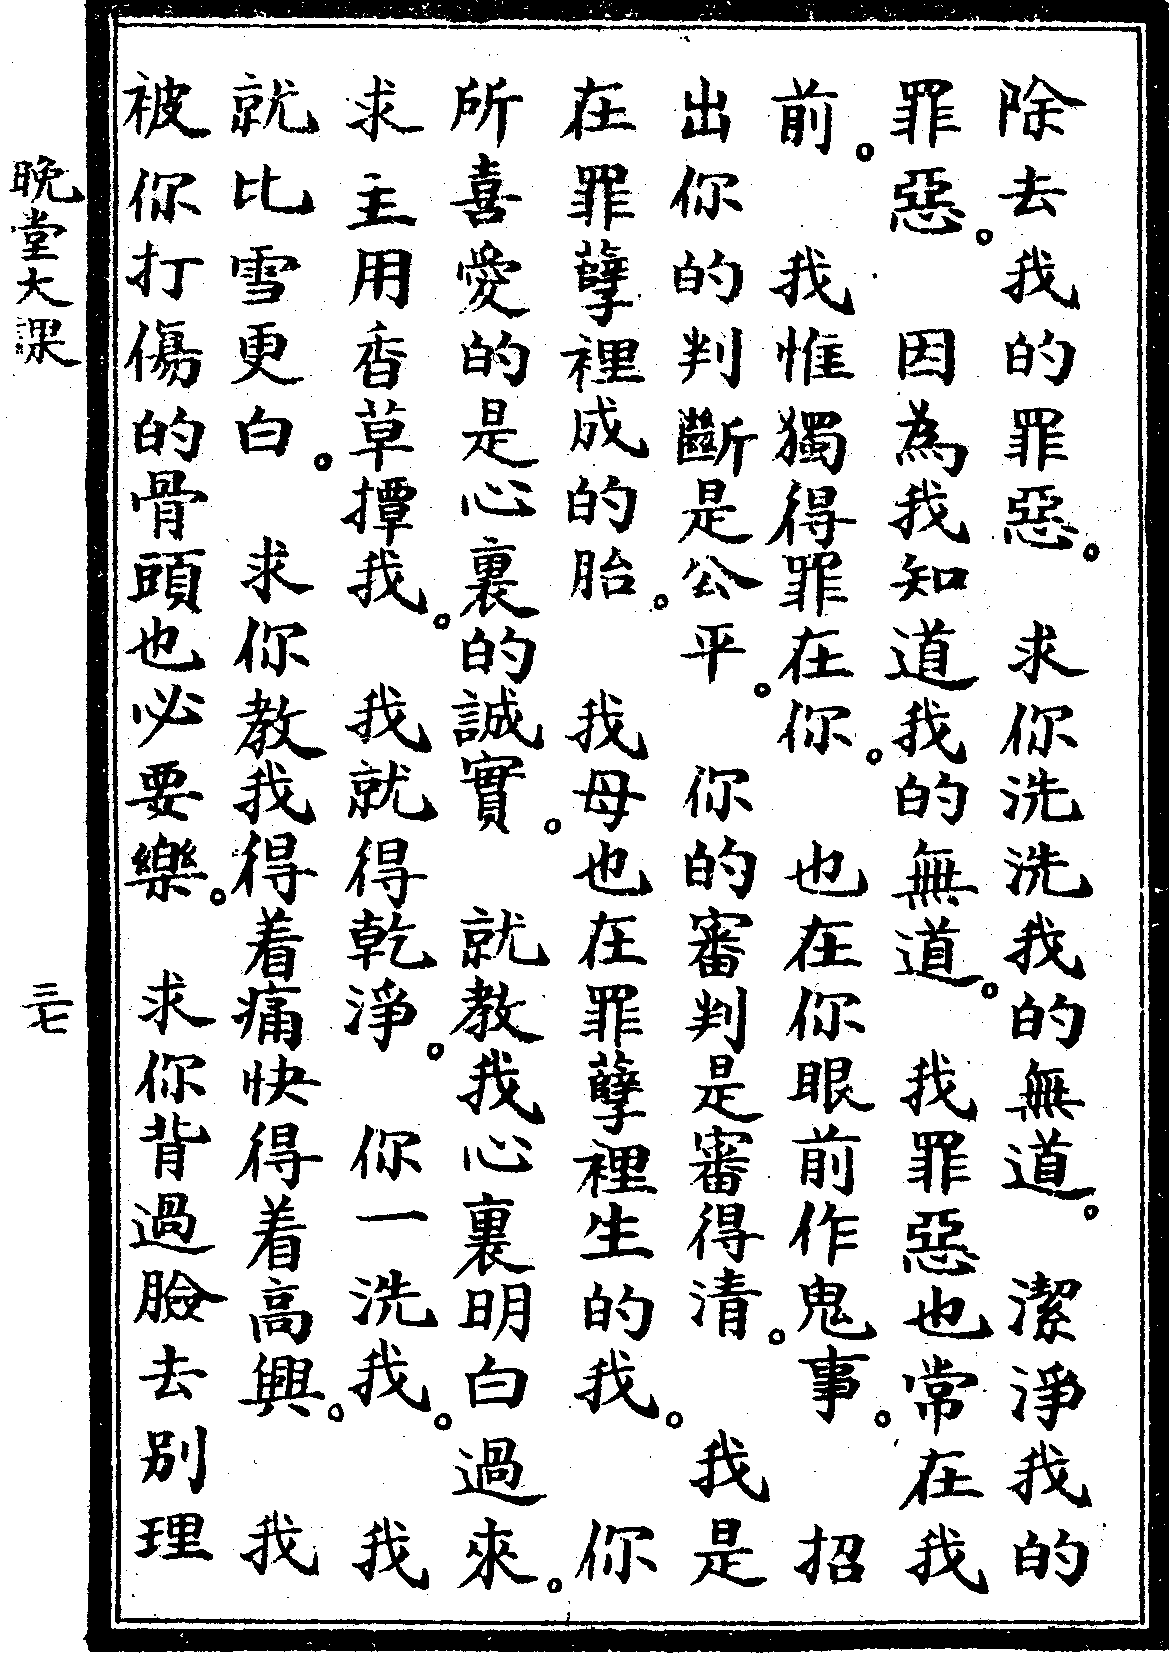 除去我的罪惡。求你洗洗我的無道。潔淨我的
罪惡。因為我知道我的無道。我罪惡也常在我
前。我惟獨得罪在你。也在你眼前作鬼事。招
出你的判斷是公平。你的審判是審得清。我是
在罪孽裡成的胎。我母也在罪孽裡生的我。你
所喜愛的是心裏的誠實。就教我心裏明白過來。
求主用香草撢我。我就得乾淨。你一洗我。我
就比雪更白。求你教我得着痛快得着高興。我
被你打傷的骨頭也必要樂。求你背過臉去別理
晚堂大課
三七